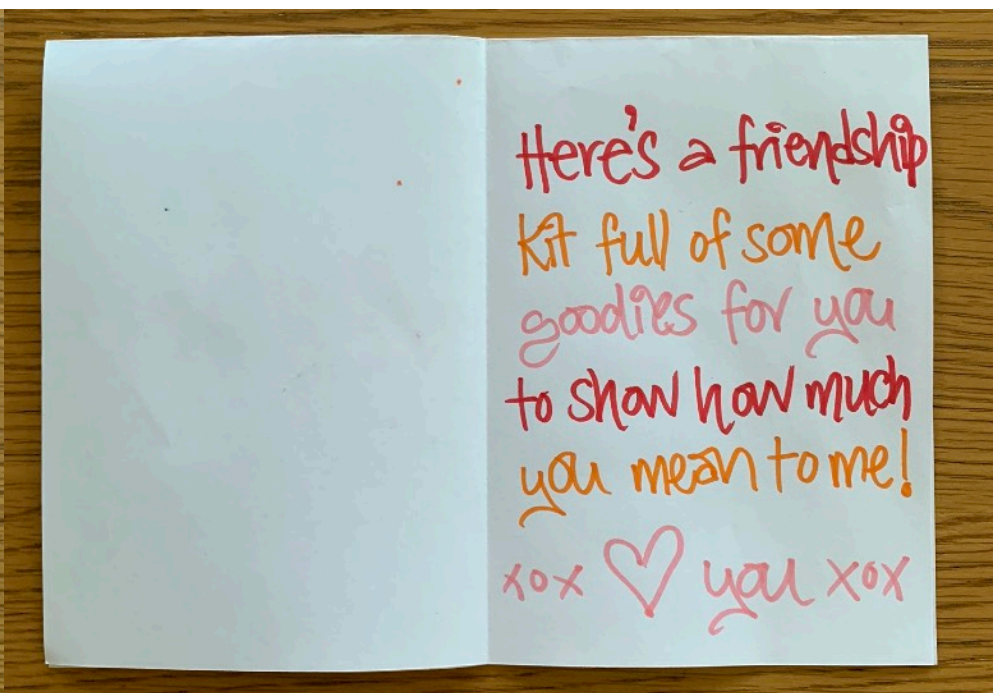 Here's a friendship
Kit full of some
goodies for you
to show how much
you mean to me!
xox ♡ you xox